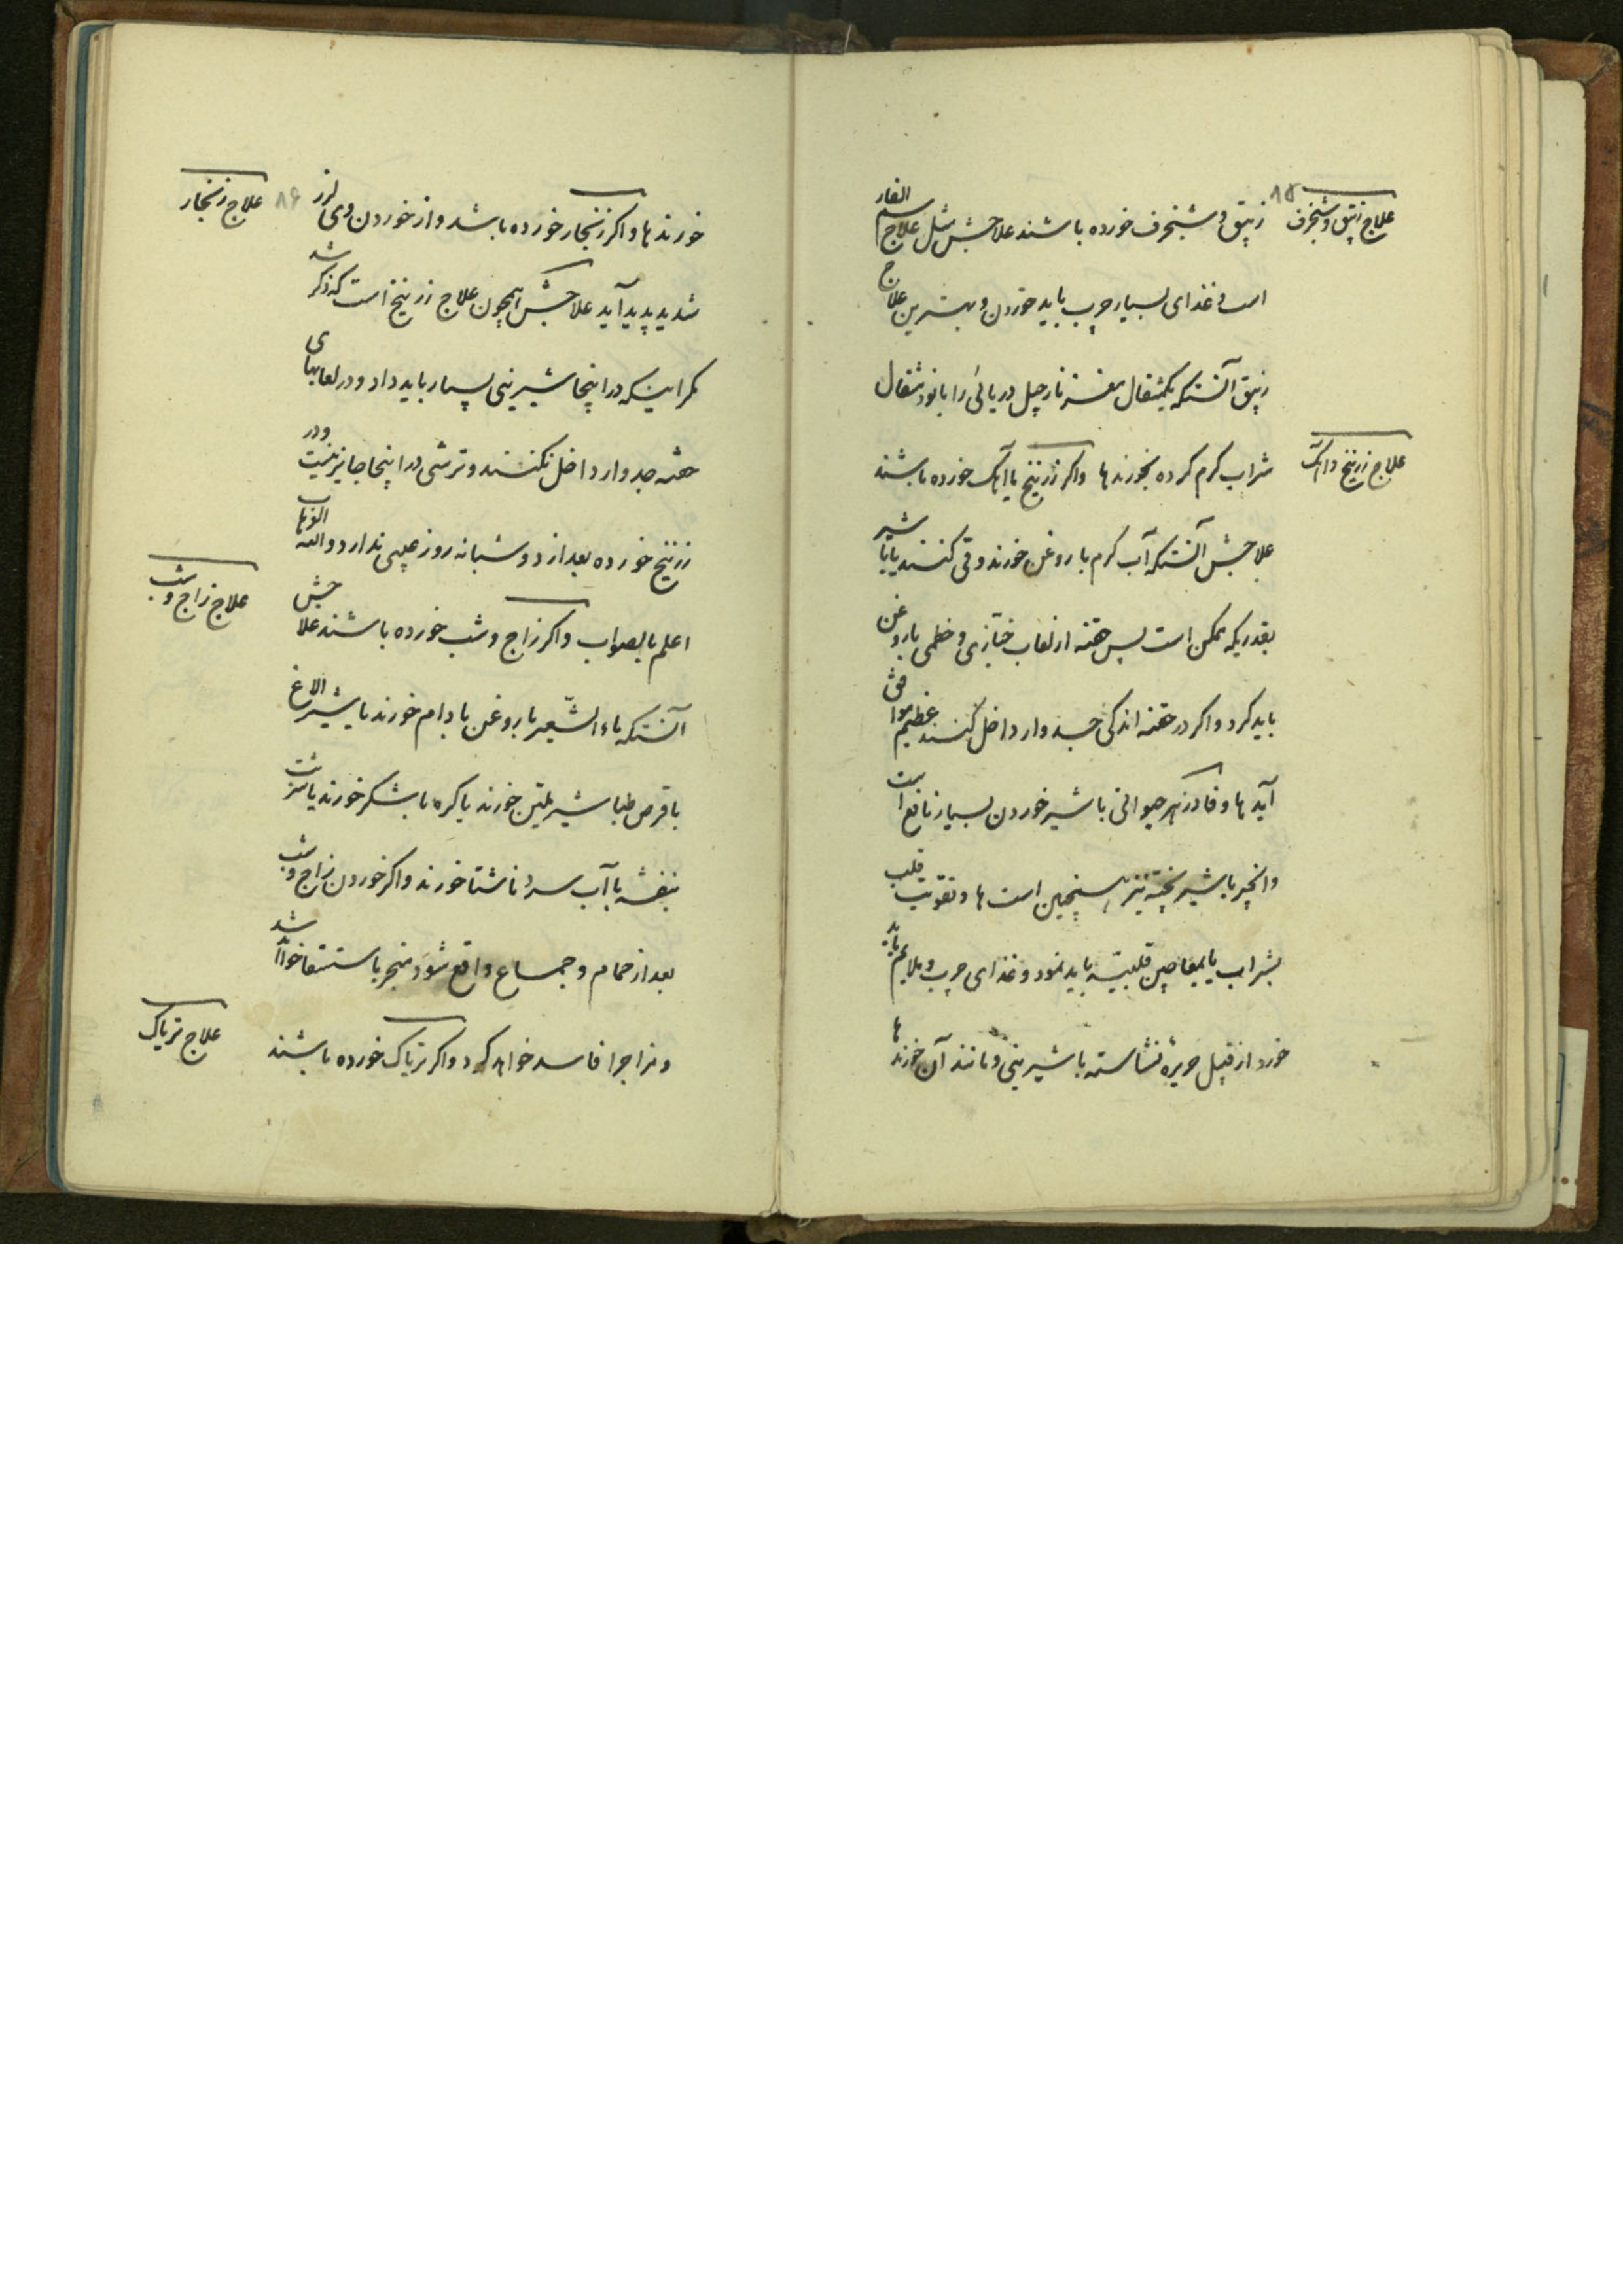 علاج زیبق و شنجرف
۸۵
زیبق و شنجرف خورده باشند علاجش مثل علاج سم الفار
است و غذای بسیار چرب باید خوردن و بهترین علاج
زیبق آنستکه یکمثقال مغز نارجیل دریائی را با نود مثقال
علاج زرنیخ و آهک
شراب کرم کرده بخورند ها واکر زرنیخ یا آهک خورده باشند
علاجش آنستکه آب کرم با روغن خورند و قی کنند یا با شیر
بقدریکه ممکن است پس حقنه از لعاب خبازی و خطمی با روغن
باید کرد واکر در حقنه اندکی جدوار داخل کنند عظیم موافق
آید ها و فادزهر حیوانی با شیر خوردن بسیار نافع است
وانجیر با شیر پخته نیز همچنین است ها و تقویت قلب
بشراب یا بمعاجین قلبیه باید نمود و غذای چرب و ملایم باید
خورد از قبیل حریره نشاسته با شیرینی و مانند آن خورند ها
علاج زنجار
۸۶
خورند ها واکر زنجار خورده باشد و از خوردن وی لرز
شدید پدید آید علاجش همچون علاج زرنیخ است که ذکر شد
مکر اینکه در اینجا شیرینی بسیار باید داد و در لعابهای
حقنه جدوار داخل نکنند و ترشی در اینجا جایز نیست و در
زرنیخ خورده بعد از دو شبانه روز عیبی ندارد والله الوهاب
علاج زاج و شب
اعلم بالصواب واکر زاج و شب خورده باشند علاجش
آنستکه ماء الشعیر با روغن بادام خورند یا شیر الاغ
با قرص طباشیر ملین خورند یا کره با شکر خورند یا شربت
بنفشه با آب سرد ناشتا خورند واکر خوردن زاج و شب
بعد از حمام و جماع واقع شود منجر باستسقا خواهد شد
علاج تریاک
و مزاجرا فاسد خواهد کرد واکر تریاک خورده باشند